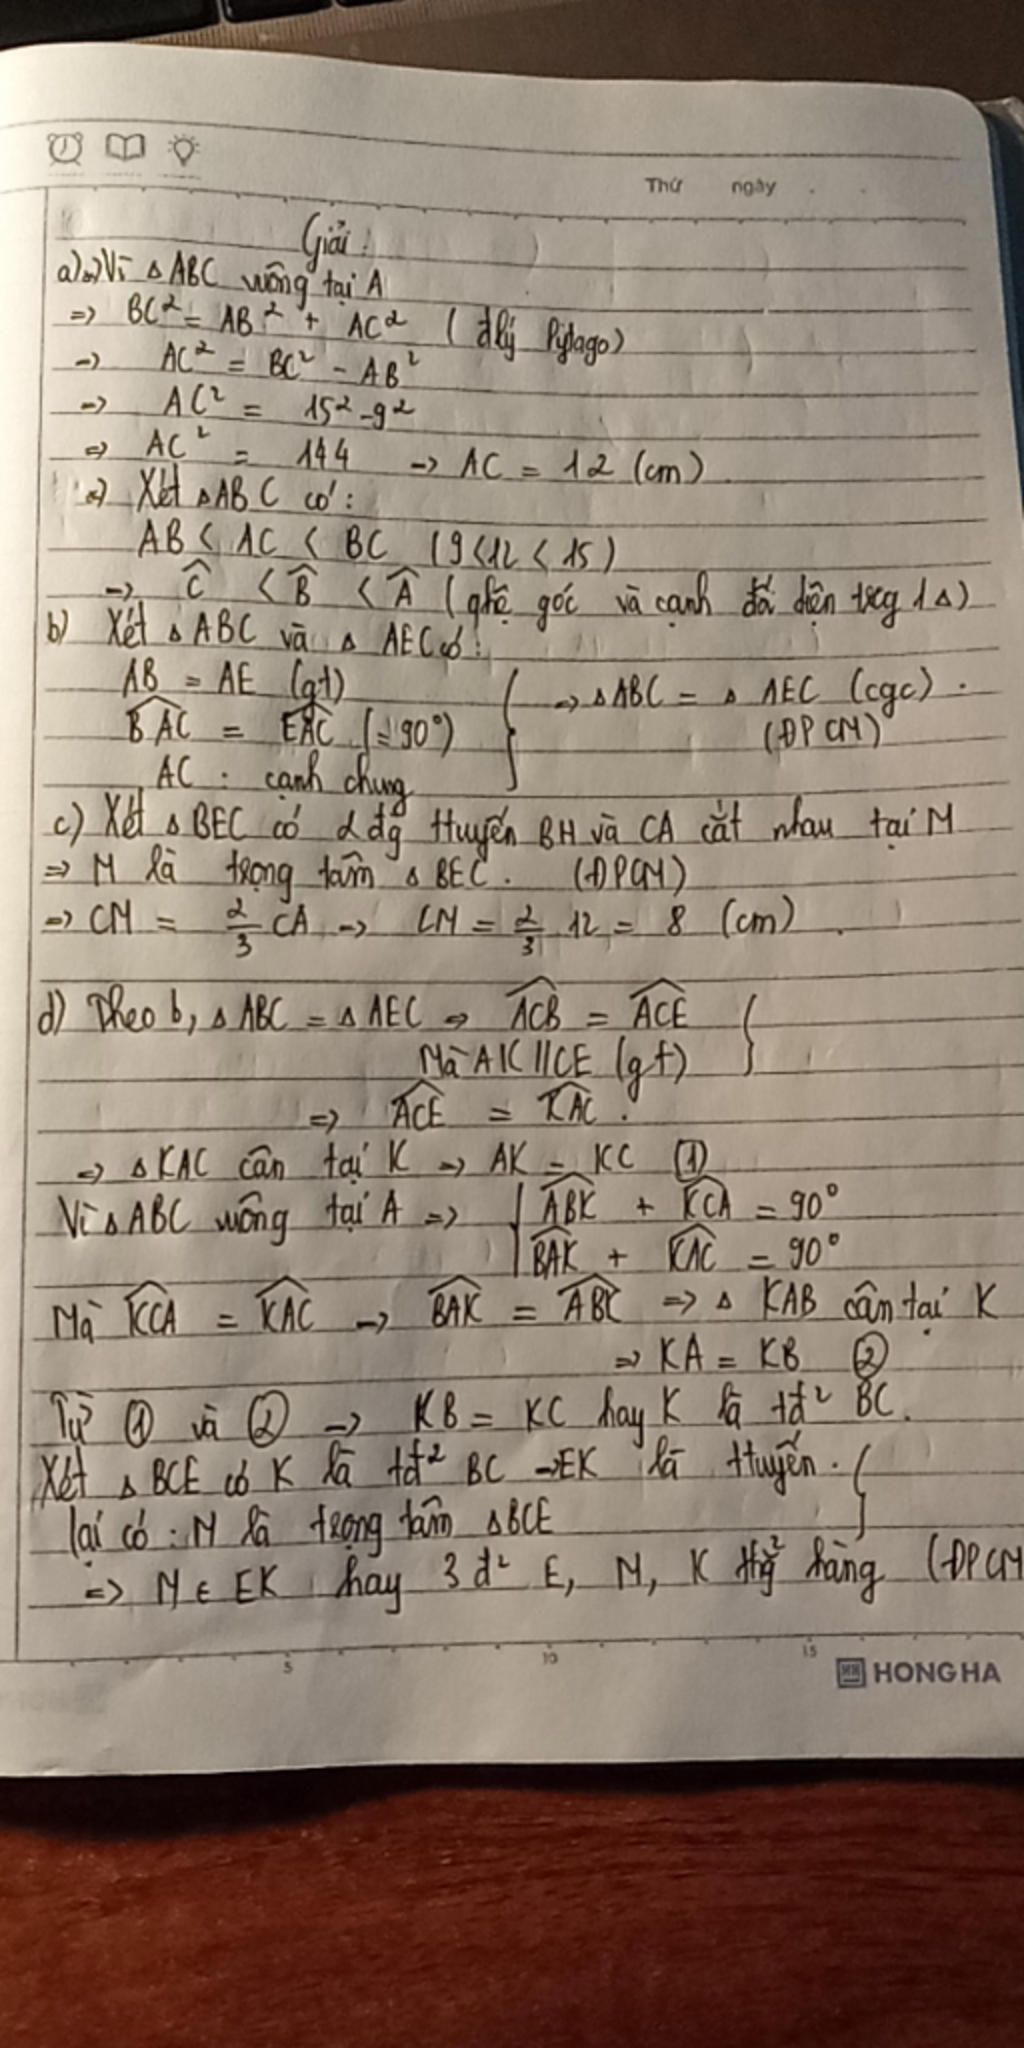 Thứ ngày
Giải:
a) Vì Δ ABC vuông tại A
=> BC² = AB² + AC² ( đlý Pytago)
-> AC² = BC² - AB²
-> AC² = 15² - 9²
=> AC² = 144 -> AC = 12 (cm)
Xét Δ ABC có:
AB < AC < BC (9 < 12 < 15)
-> Ĉ < B̂ < Â (qhệ góc và cạnh đối diện trg 1Δ)
b) Xét Δ ABC và Δ AEC có:
AB = AE (gt)
BAC = EAC (=90°) } -> Δ ABC = Δ AEC (cgc).
(ĐPCM)
AC : cạnh chung
c) Xét Δ BEC có 2 đg ttuyến BH và CA cắt nhau tại M
=> M là trọng tâm Δ BEC. (ĐPCM)
=> CM = 2/3 CA -> CM = 2/3 . 12 = 8 (cm).
d) Theo b, Δ ABC = Δ AEC => ACB = ACE }
Mà AK // CE (gt)
=> ACE = KAC.
=> Δ KAC cân tại K -> AK = KC ①
Vì Δ ABC vuông tại A => { ABK + KCA = 90°
BAK + KAC = 90°
Mà KCA = KAC -> BAK = ABK => Δ KAB cân tại K
=> KA = KB ②
Từ ① và ② -> KB = KC hay K là tđ² BC.
Xét Δ BCE có K là tđ² BC -> EK là ttuyến. }
lại có : M là trọng tâm Δ BCE
=> M ∈ EK hay 3 đ² E, M, K thg² hàng (ĐPCM
5 10 15
HONG HA